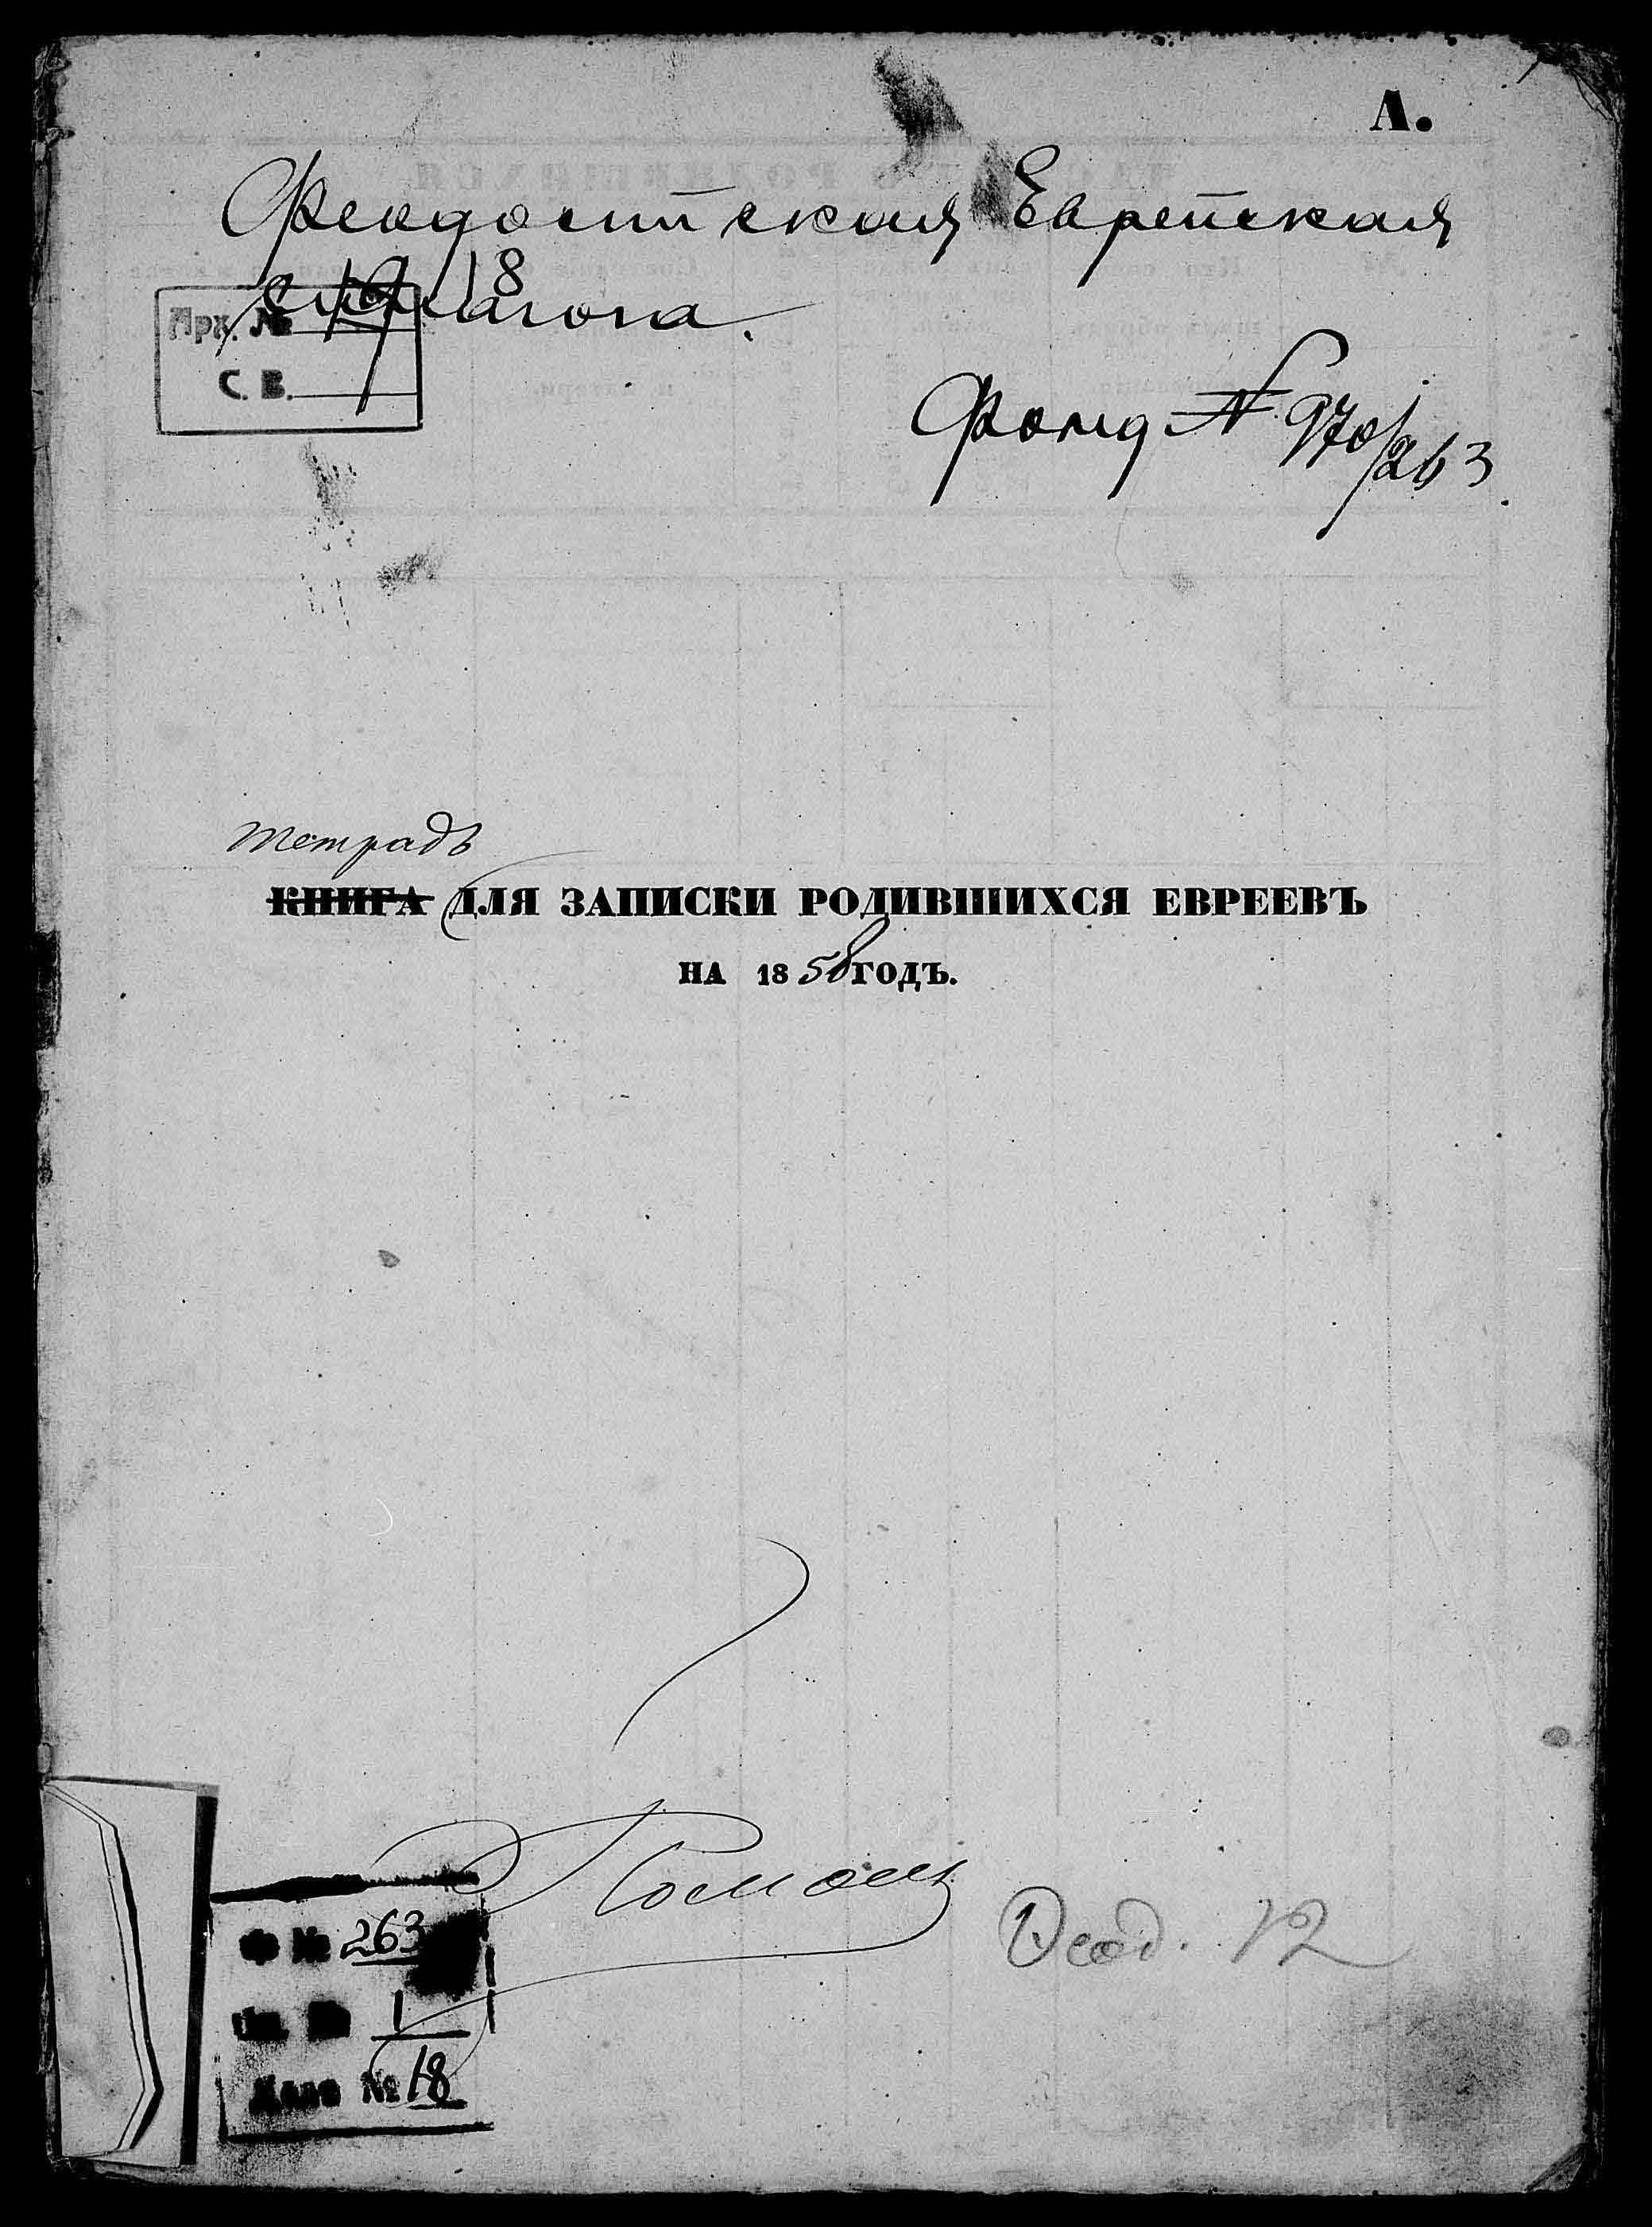 А.
Феодосийская Еврейская
синагога.
18
Арх. №
С. В.
Фонд № 970/263
тетрадь
КНИГА ДЛЯ ЗАПИСКИ РОДИВШИХСЯ ЕВРЕЕВЪ
НА 1858 ГОДЪ.
Ф № 263
Оп. № 1
Дело № 18
Феод. 12